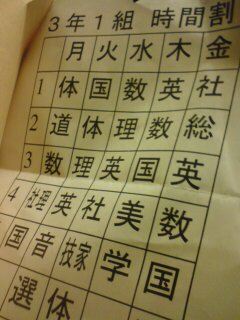 ３年１組 時間割
月 火 水 木 金
1 体 国 数 英 社
2 道 体 理 数 総
3 数 理 英 国 英
4 社理 英 社 美 数
国 音 技家 学 国
選 体